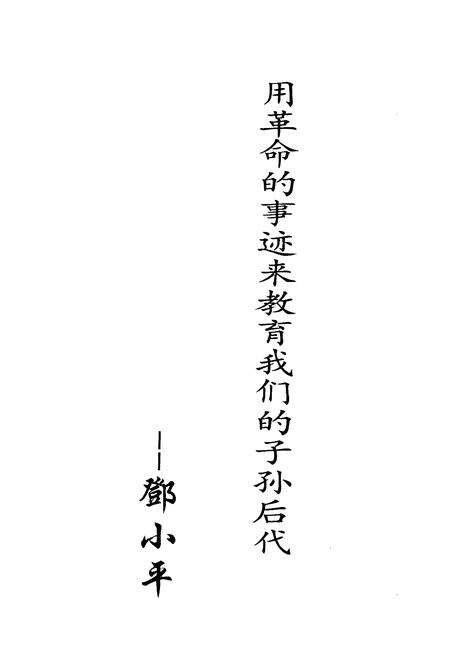 用革命的事迹来教育我们的子孙后代
——鄧小平